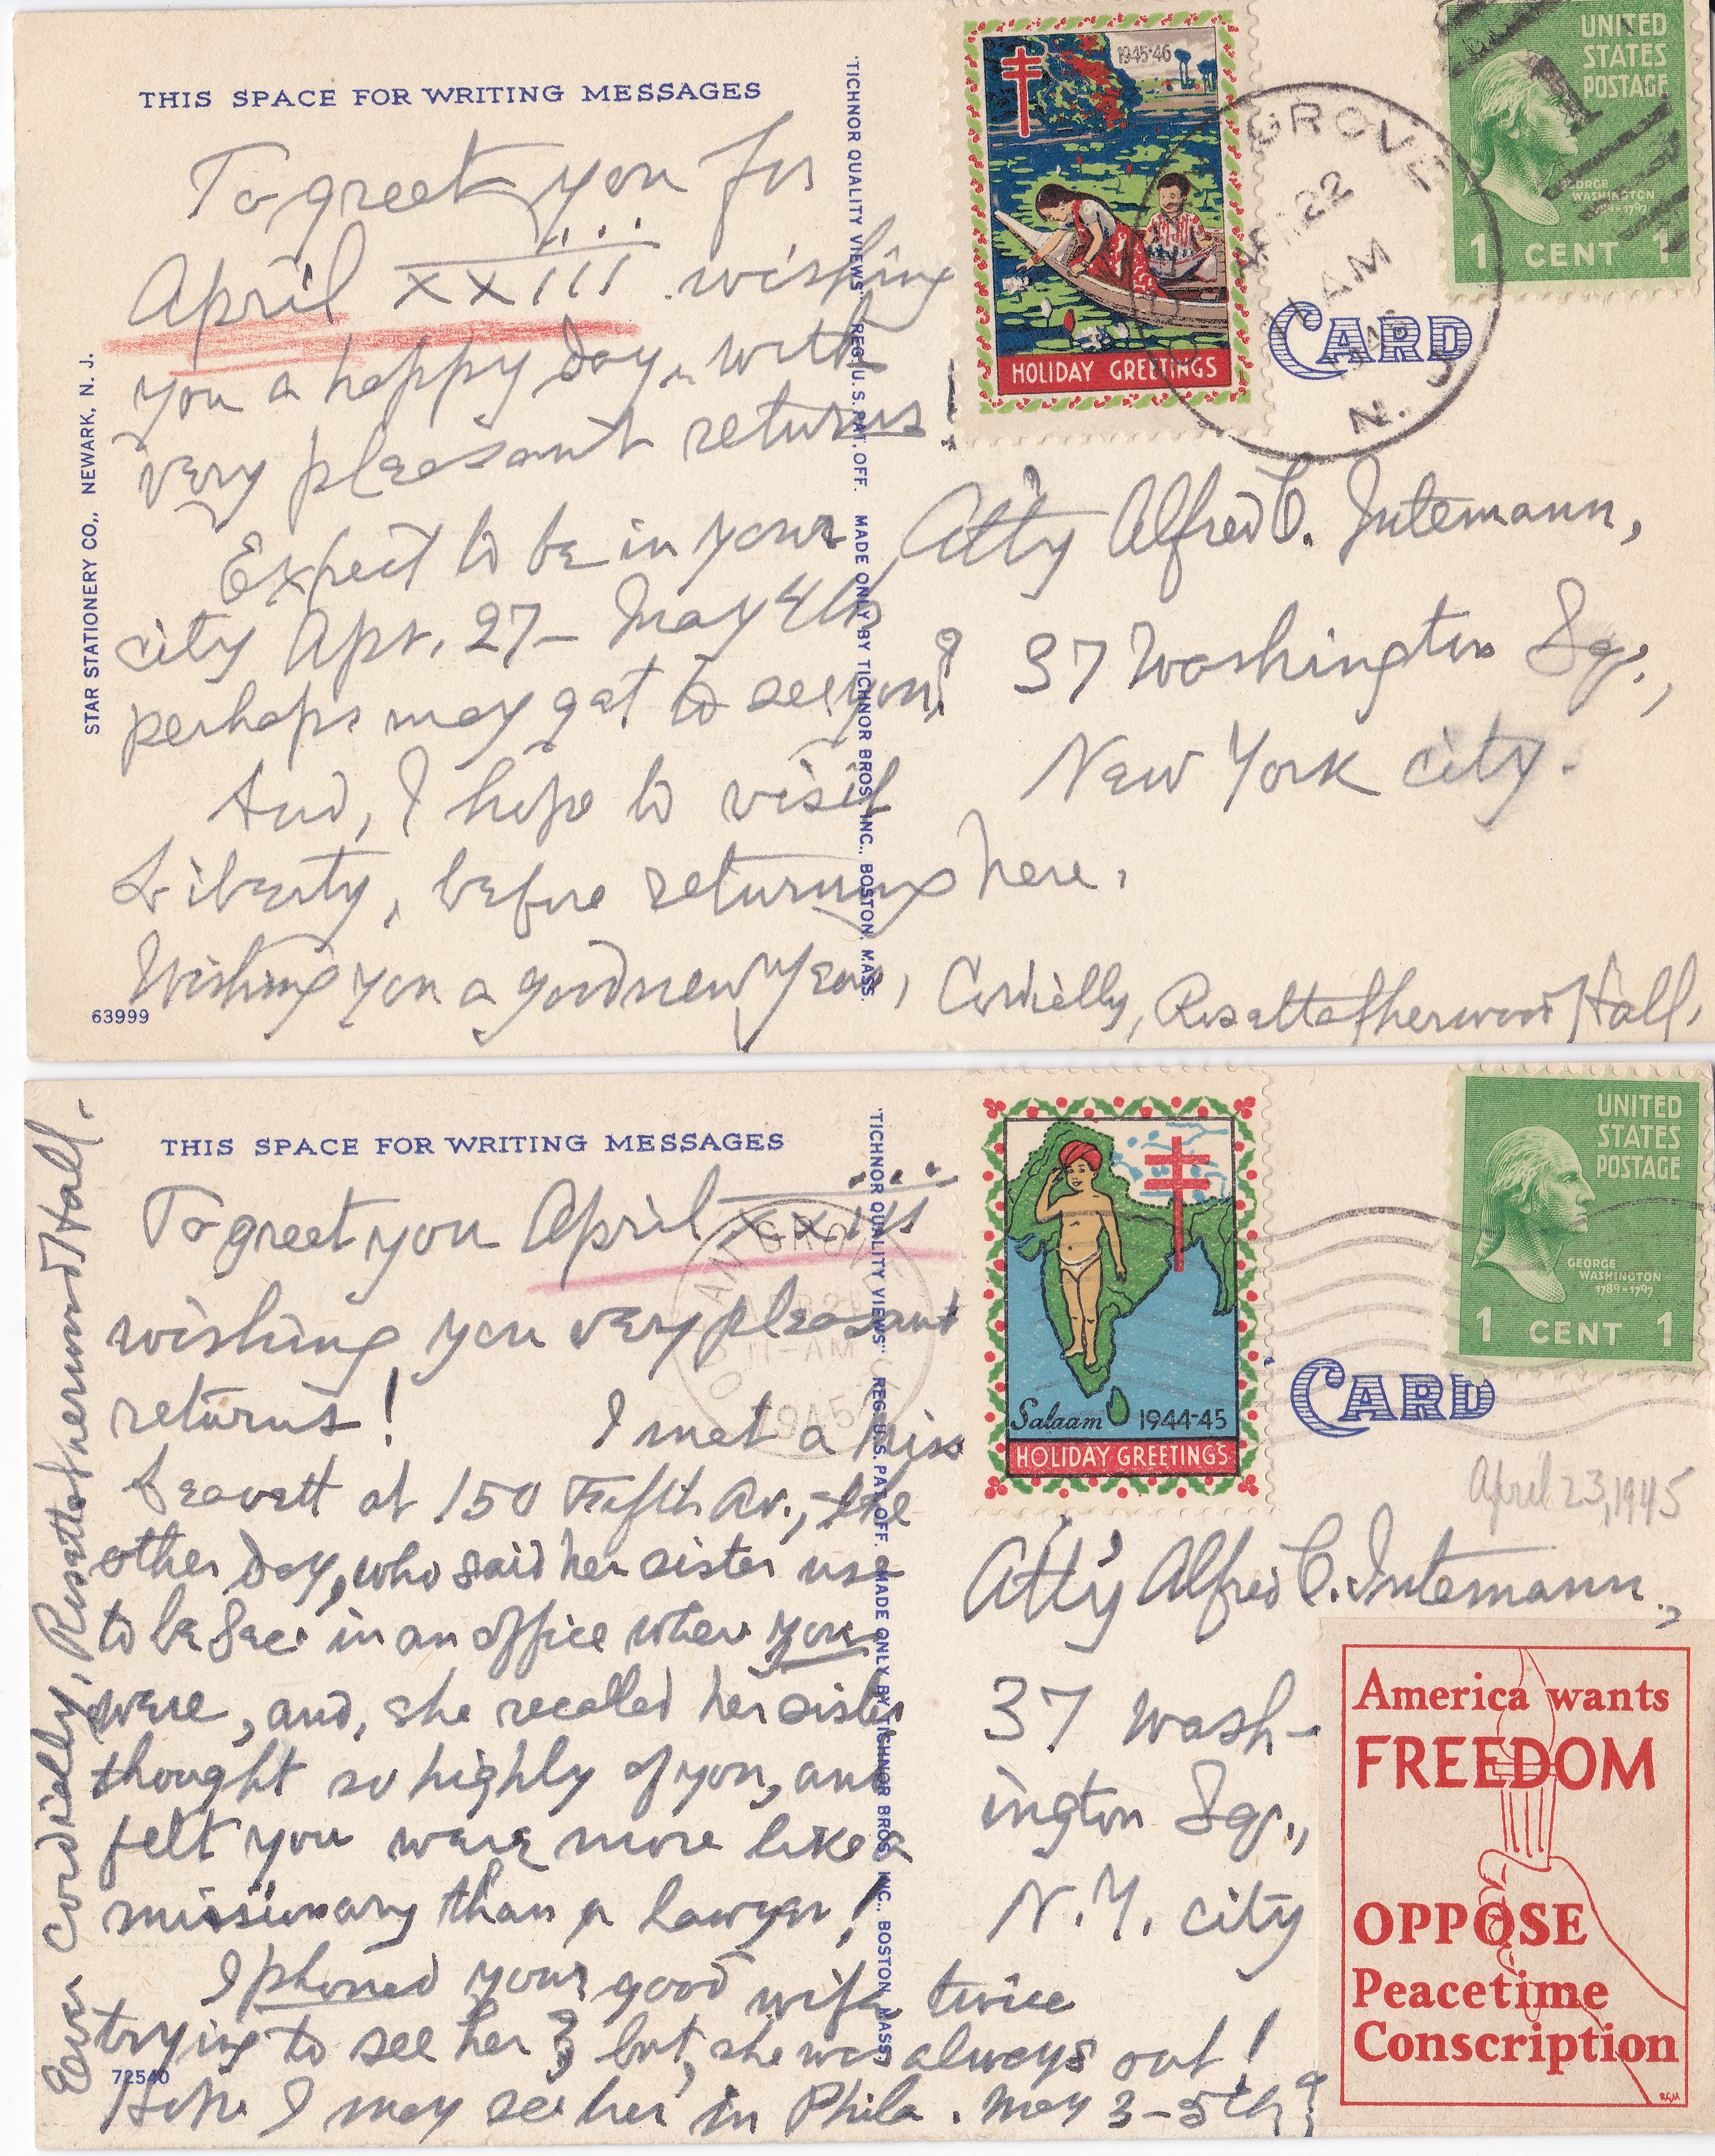 THIS SPACE FOR WRITING MESSAGES
To greet you for
April XXIII wishing
you a happy day, with
very pleasant returns
Expect to be in your
city Apr. 27- May 4th,
perhaps may get to see you?
And, I hope to visit
Liberty, before returning here.
Wishing you a good new year, Cordially, Rosetta Sherwood Hall.
63999
STAR STATIONERY CO., NEWARK, N. J.
"TICHNOR QUALITY VIEWS" REG. U. S. PAT. OFF. MADE ONLY BY TICHNOR BROS. INC., BOSTON. MASS.
1945-46
HOLIDAY GREETINGS
GROVE
22
AM
N. J.
UNITED
STATES
POSTAGE
GEORGE
WASHINGTON
1789-1797
1 CENT 1
CARD
Att'y Alfred C. Intemann,
37 Washington Sq.,
New York city.
THIS SPACE FOR WRITING MESSAGES
To greet you April XXIII
wishing you very pleasant
returns! I met a Miss
Leavett at 150 Fifth Av., the
other day, who said her sister use
to be Sec. in an office where you
were, and, she recalled her sister
thought so highly of you, and
felt you were more like a
missionary than a lawyer!
I phoned your good wife twice
trying to see her, but, she was always out!
Hope I may see her in Phila. May 3-5th?
Ever cordially, Rosetta Sherwood Hall.
72540
"TICHNOR QUALITY VIEWS" REG. U. S. PAT. OFF. MADE ONLY BY TICHNOR BROS. INC., BOSTON. MASS.
GROVE
11-AM
1945
Salaam 1944-45
HOLIDAY GREETINGS
UNITED
STATES
POSTAGE
GEORGE
WASHINGTON
1789-1797
1 CENT 1
CARD
April 23, 1945
Att'y Alfred C. Intemann,
37 Wash-
ington Sq.,
N.Y. city
America wants
FREEDOM
OPPOSE
Peacetime
Conscription